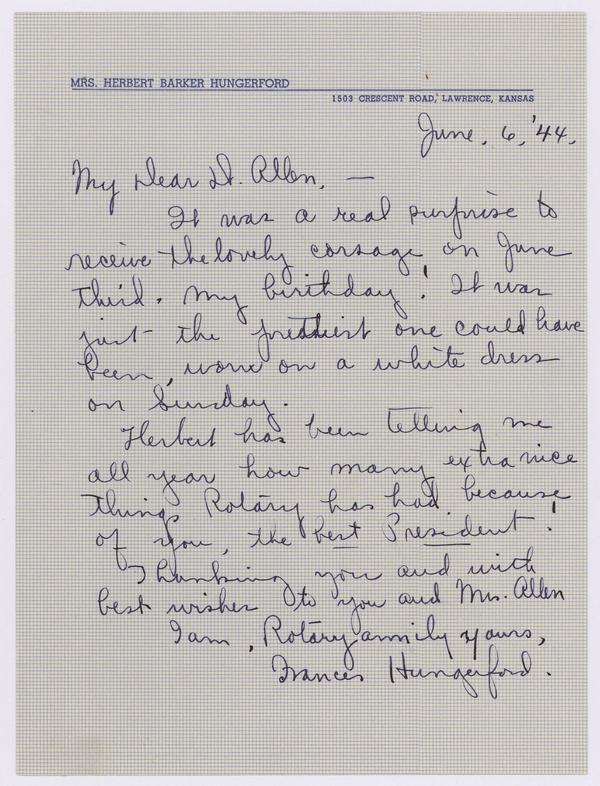 MRS. HERBERT BARKER HUNGERFORD
1503 CRESCENT ROAD, LAWRENCE, KANSAS
June, 6, '44,
My Dear Dr. Allen, —
It was a real surprise to
receive the lovely corsage on June
third. My birthday! It was
just the prettiest one could have
been, worn on a white dress
on Sunday.
Herbert has been telling me
all year how many extra nice
things Rotary has had because
of you, the best President!
Thanking you and with
best wishes to you and Mrs. Allen
I am, Rotaryannily yours,
Frances Hungerford.